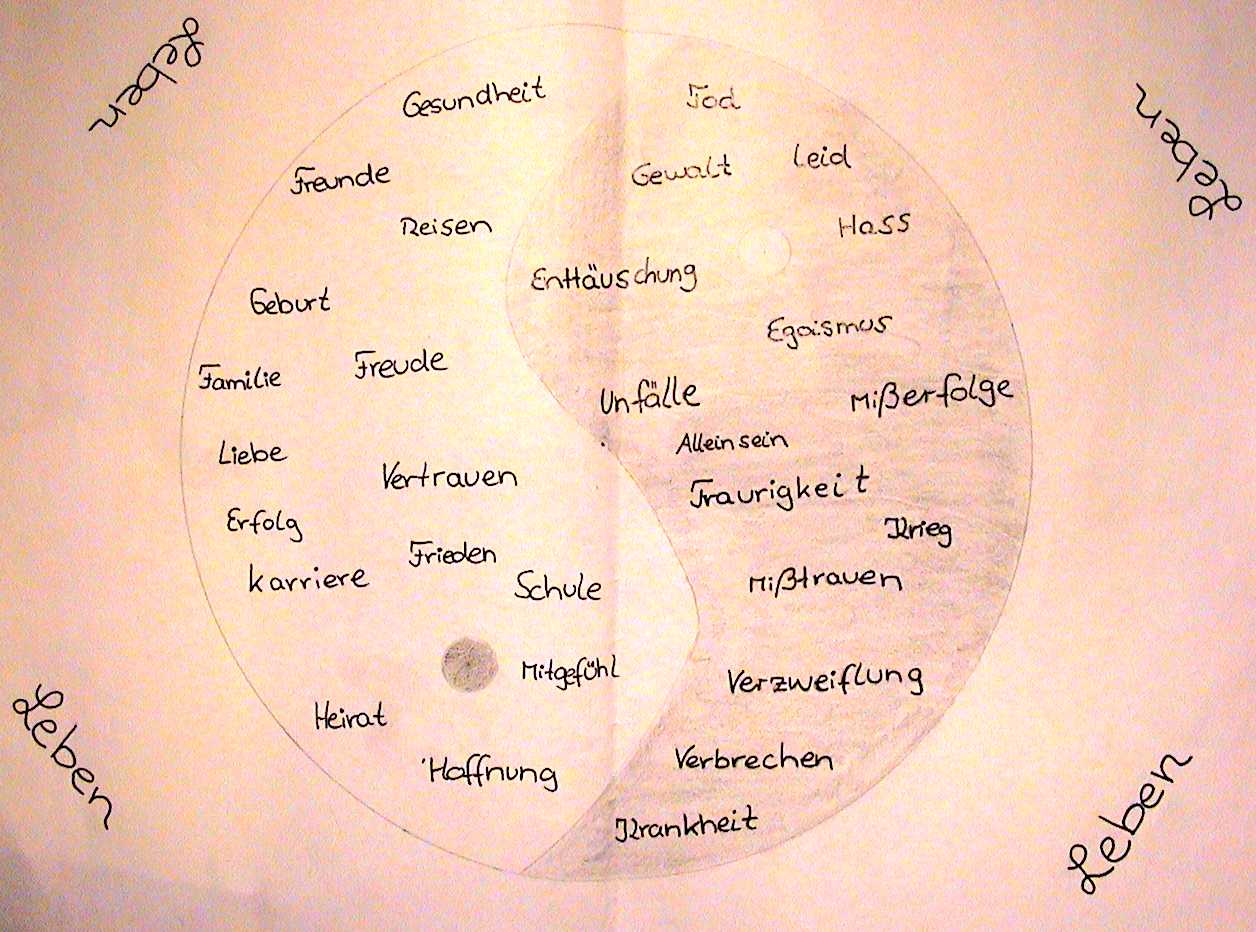 Leben
Leben
Gesundheit
Freunde
Reisen
Geburt
Familie
Freude
Liebe
Vertrauen
Erfolg
Frieden
Karriere
Schule
Mitgefühl
Heirat
Hoffnung
Tod
Gewalt
Leid
Hass
Enttäuschung
Egoismus
Unfälle
Mißerfolge
Alleinsein
Traurigkeit
Krieg
Mißtrauen
Verzweiflung
Verbrechen
Krankheit
Leben
Leben